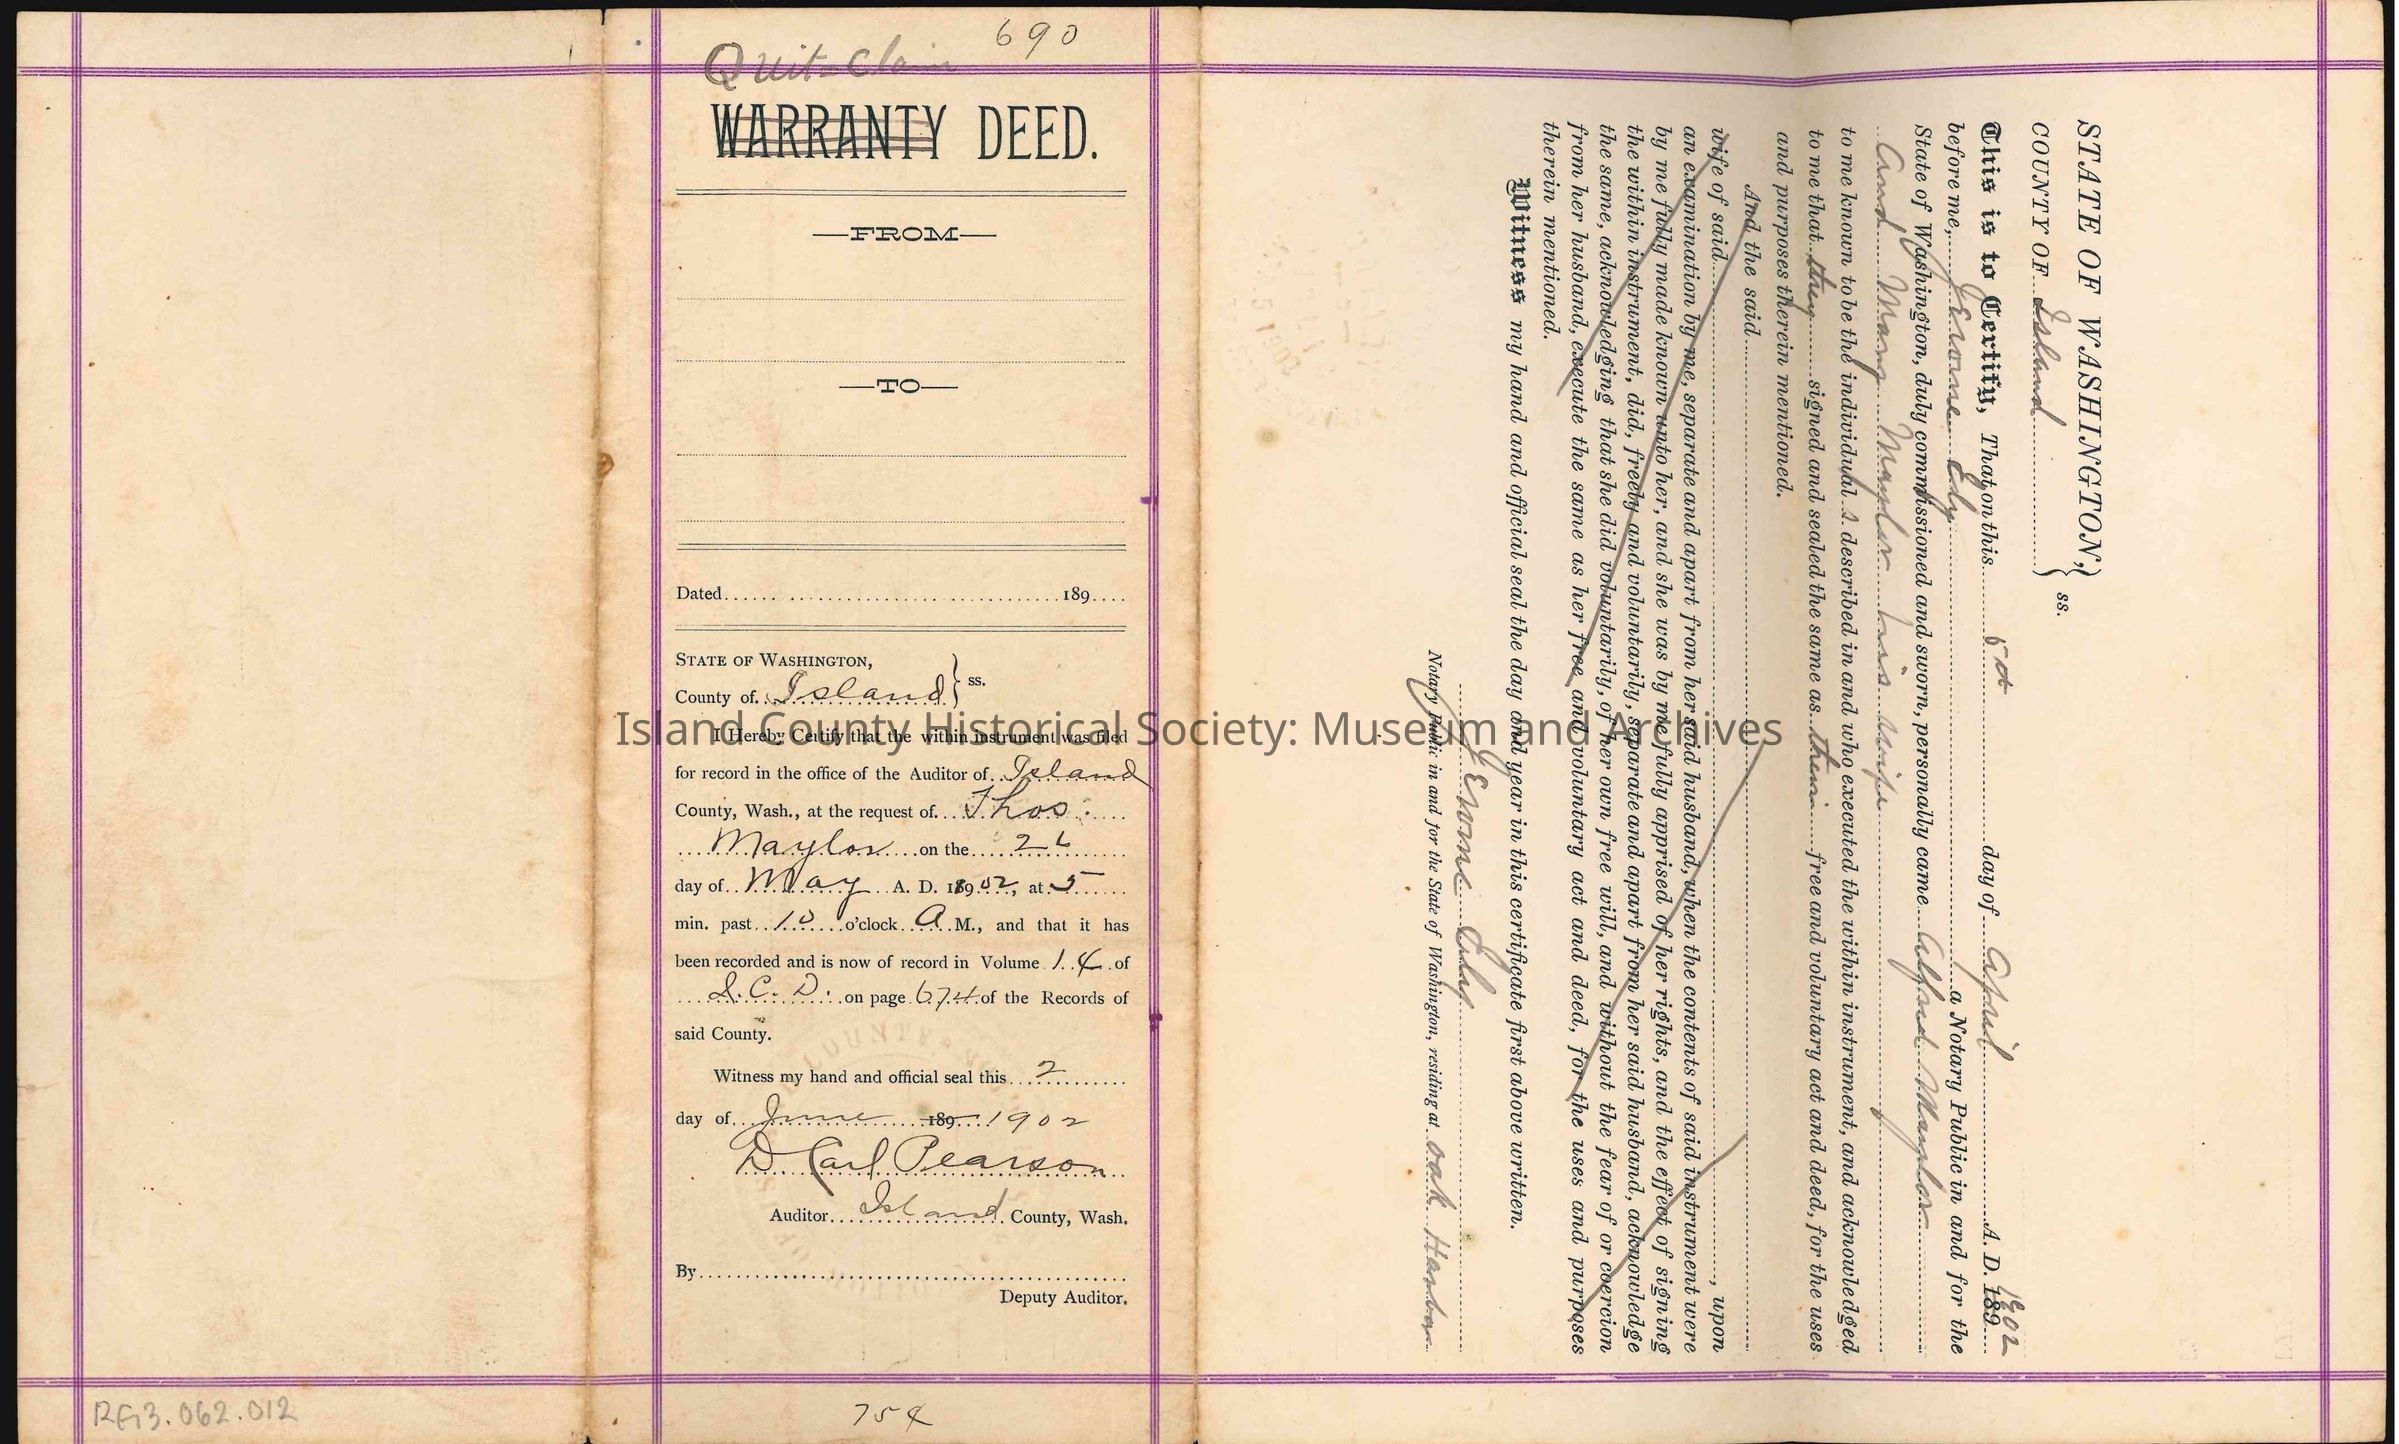 690
Quit-Claim
WARRANTY DEED.
—FROM—
—TO—
Dated 189
STATE OF WASHINGTON,
County of Island } ss.
I Hereby Certify that the within instrument was filed
for record in the office of the Auditor of Island
County, Wash., at the request of Thos.
Maylor on the 26
day of May A. D. 1902, at 5
min. past 10 o'clock A M., and that it has
been recorded and is now of record in Volume 14 of
on page 674 of the Records of
said County.
Witness my hand and official seal this 2
day of June 189 1902
D Carl Pearson
Auditor Island County, Wash.
By
Deputy Auditor.
75¢
RG3.062.012
STATE OF WASHINGTON,
COUNTY OF Island } ss.
This is to Certify, That on this day of April A. D. 189 1902
before me, Jerome Ely a Notary Public in and for the
State of Washington, duly commissioned and sworn, personally came Alfred Maylor
and Mary Maylor his wife
to me known to be the individual s described in and who executed the within instrument, and acknowledged
to me that they signed and sealed the same as their free and voluntary act and deed, for the uses
and purposes therein mentioned.
And the said
wife of said , upon
an examination by me, separate and apart from her said husband, when the contents of said instrument were
by me fully made known unto her, and she was by me fully apprised of her rights, and the effect of signing
the within instrument, did, freely and voluntarily, separate and apart from her said husband, acknowledge
the same, acknowledging that she did voluntarily, of her own free will, and without the fear of or coercion
from her husband, execute the same as her free and voluntary act and deed, for the uses and purposes
therein mentioned.
Witness my hand and official seal the day and year in this certificate first above written.
Jerome Ely
Notary Public in and for the State of Washington, residing at Oak Harbor
Island County Historical Society: Museum and Archives